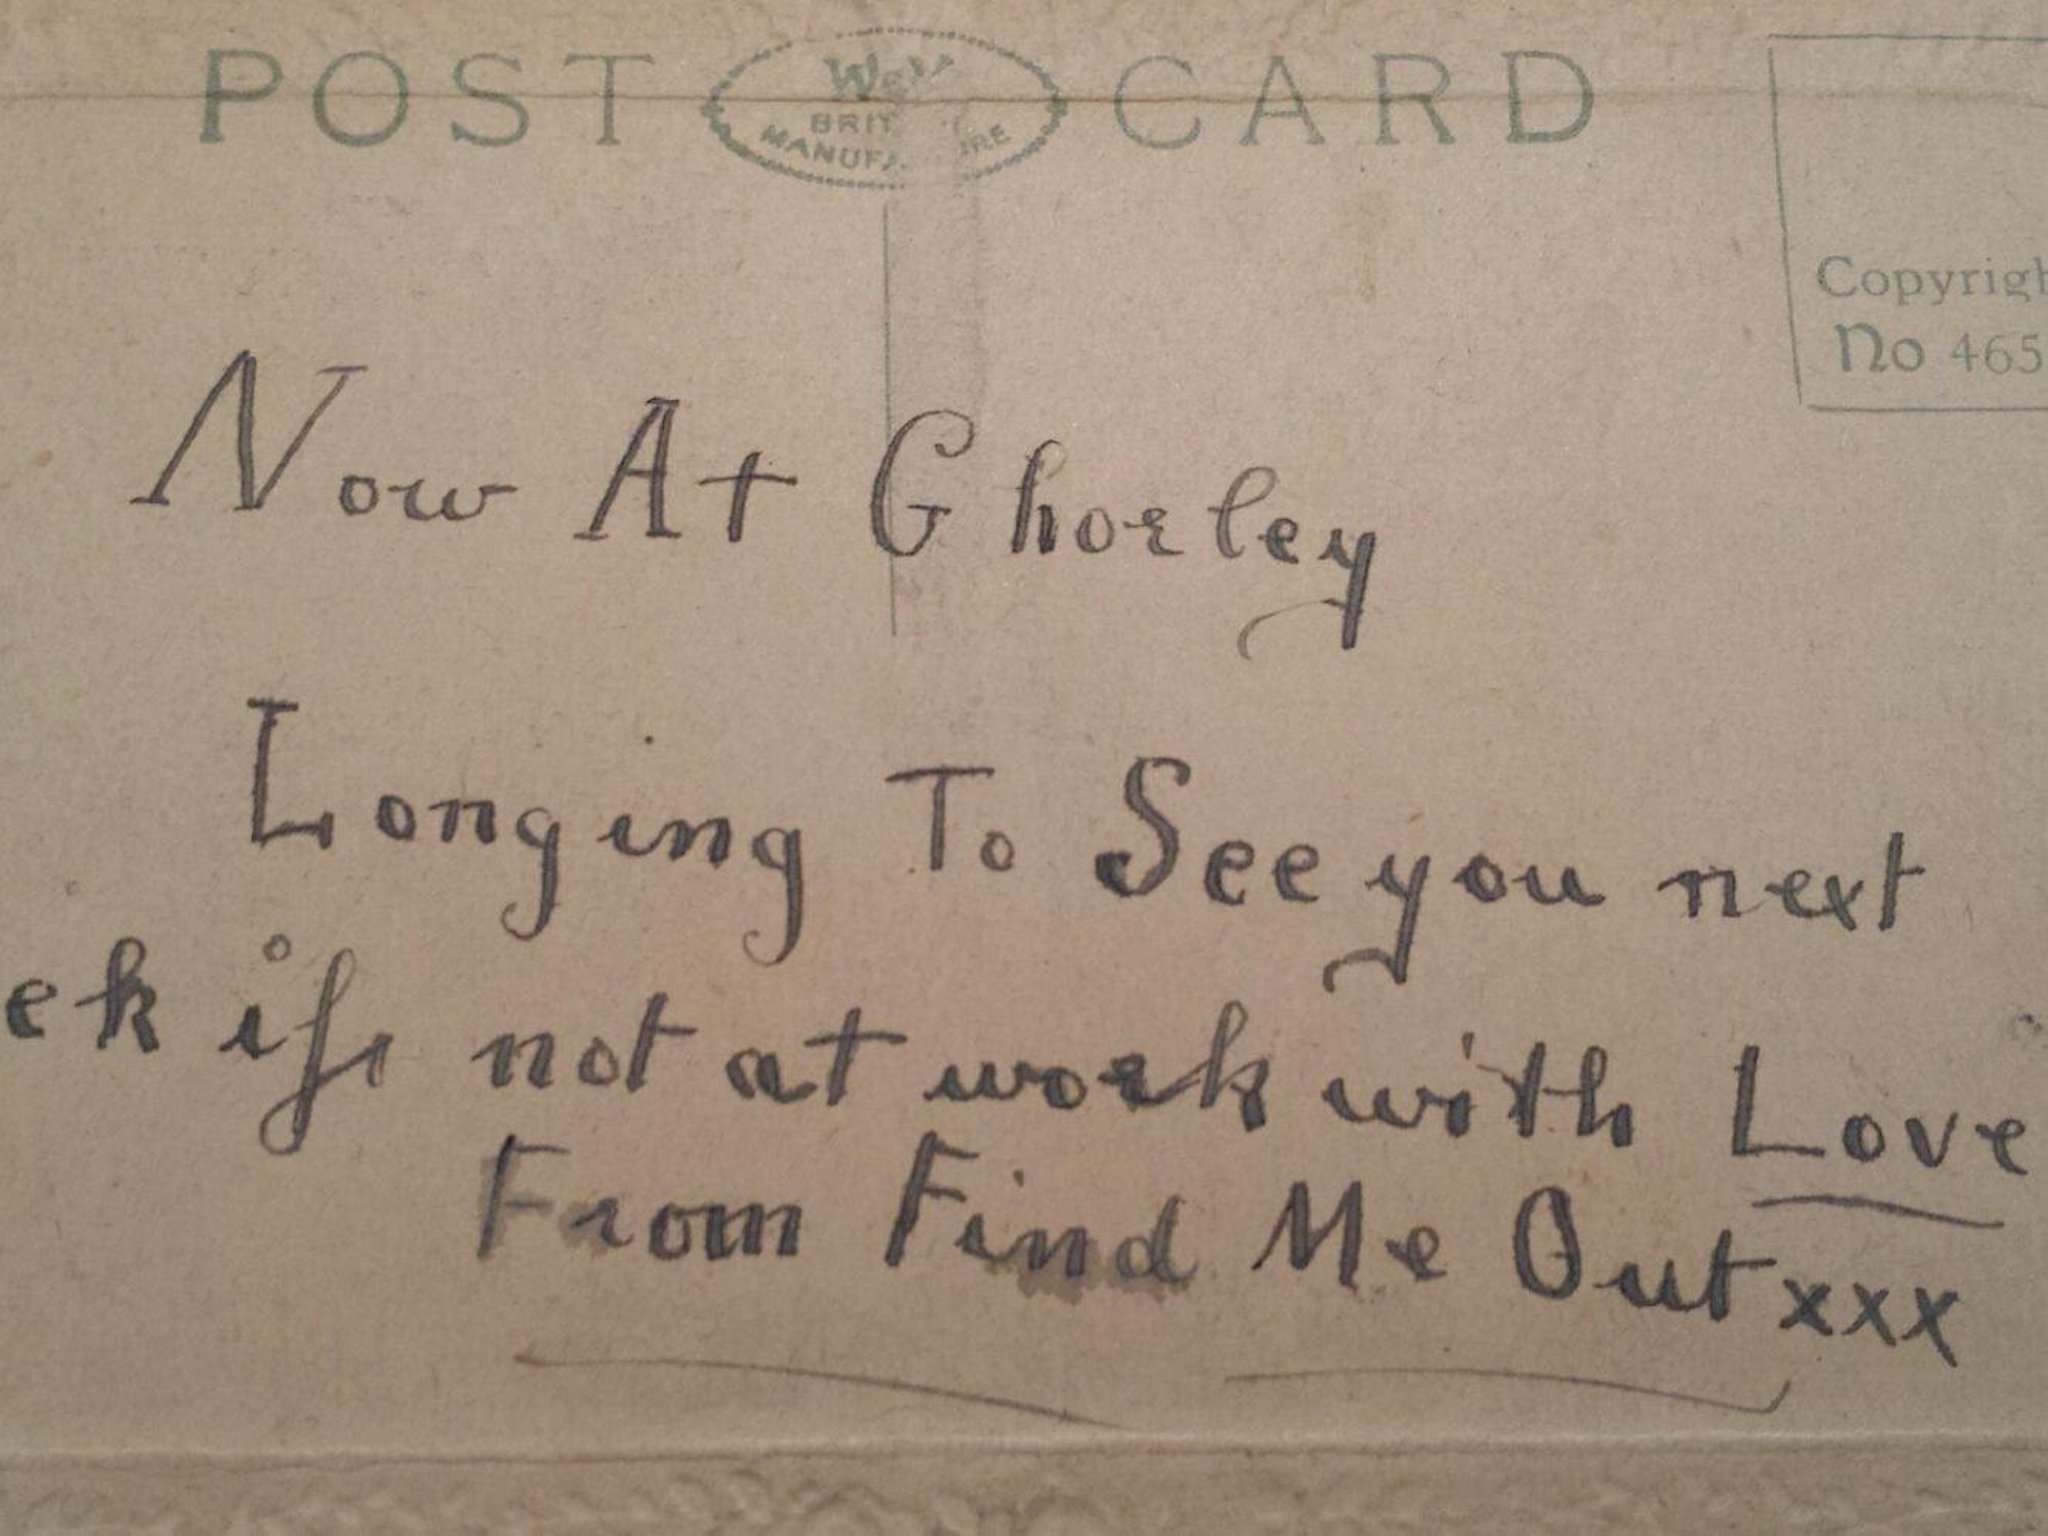 POST CARD
BRIT
MANUFA RE
Copyrigh
No 465
Now At Ghorley
Longing To See you next
ek if not at work with Love
From Find Me Out xxx